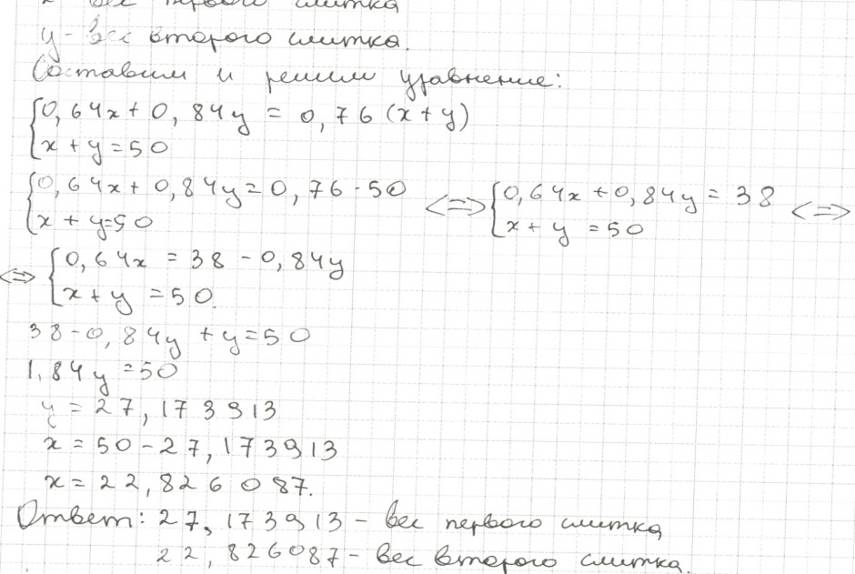 вес первого слитка
y - вес второго слитка.
Составим и решим уравнение:
{0,64x + 0,84y = 0,76(x+y)
{x + y = 50
{0,64x + 0,84y = 0,76·50 <=> {0,64x + 0,84y = 38 <=>
{x + y = 50 {x + y = 50
<=> {0,64x = 38 - 0,84y
{x + y = 50.
38 - 0,84y + y = 50
1,84y = 50
y = 27,173913
x = 50 - 27,173913
x = 22,826087.
Ответ: 27,173913 - вес первого слитка
22,826087 - вес второго слитка.